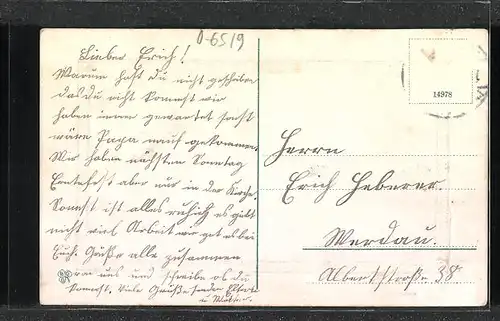 0-6519
Lieber Erich!
Warum hast du nicht geschrieben
das du nicht kommst wir
haben immer gewartet sonst
wäre Papa nauf gekommen.
Wir haben nächsten Sonntag
Erntefest aber nur in der Kirche.
Sonst ist alles ruhig es gibt
nicht viel Arbeit wie get es bei
Euch. Grüße alle zusammen
von uns und schreibe ob du
kommst. Viele Grüße senden
u Mutter.
14978
Herrn
Erich Heberer.
Werdau.
Albertstraße 38